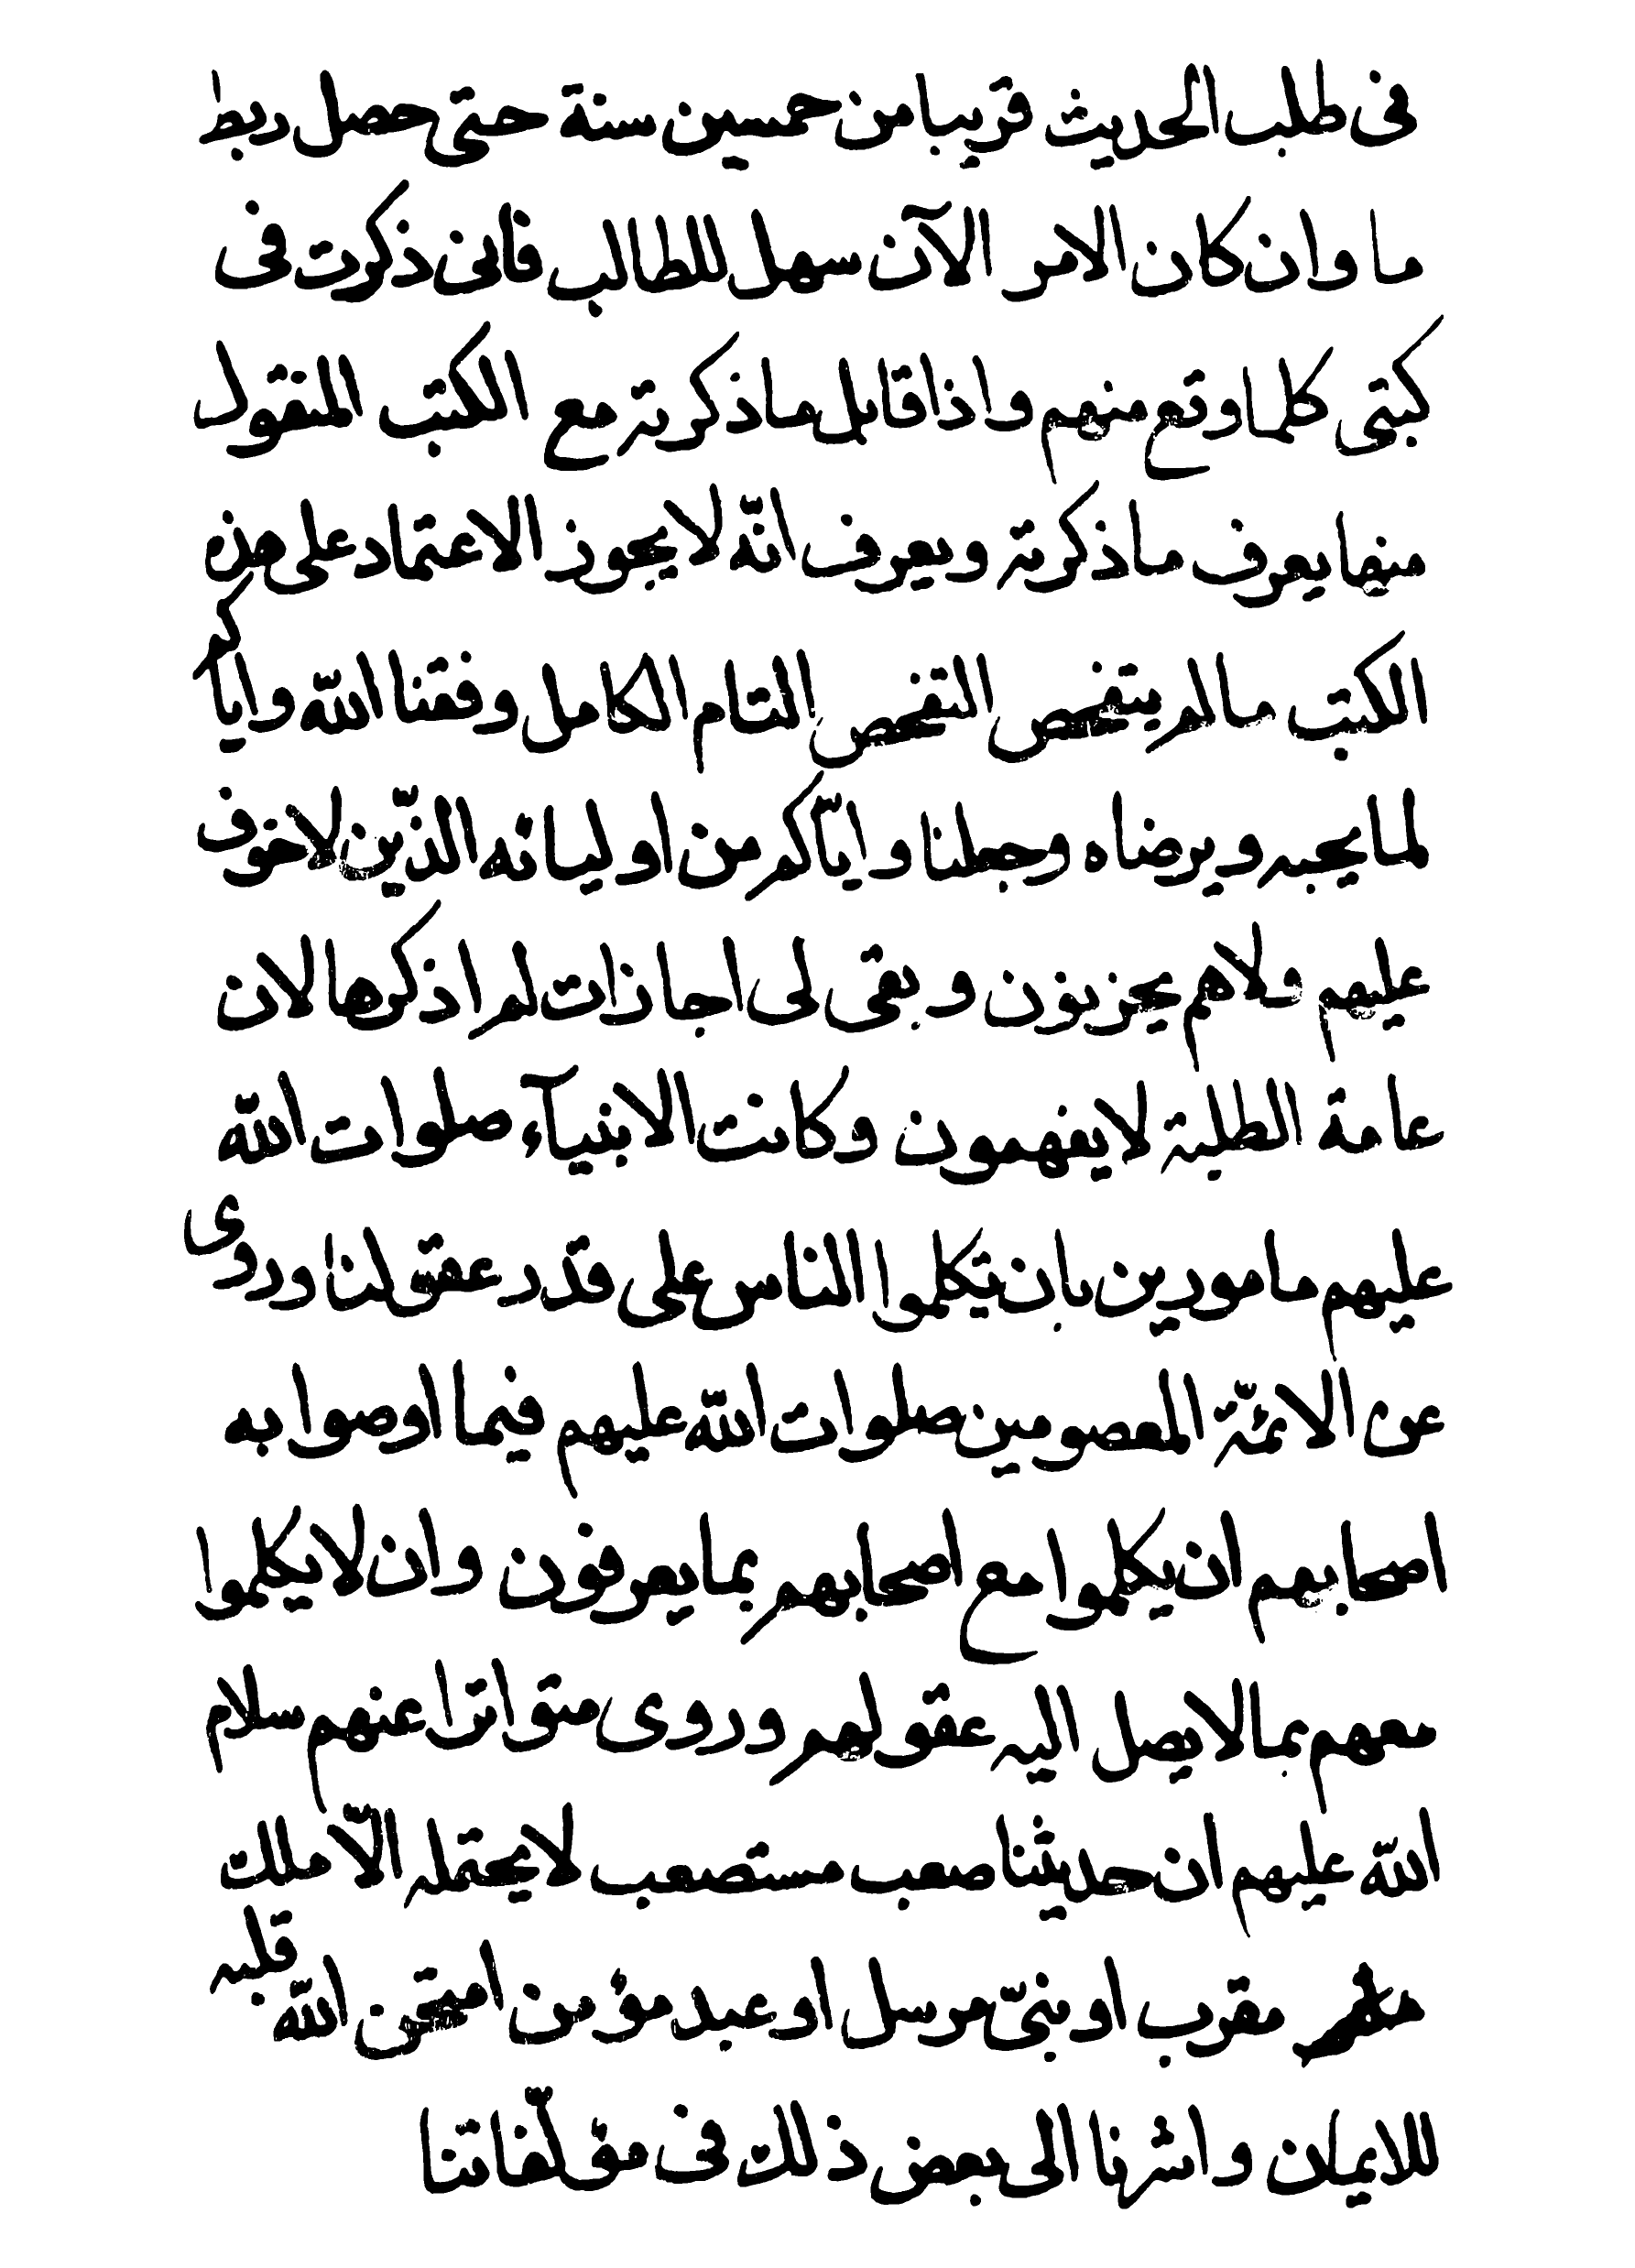 فى طلب الحديث قريبا من خمسين سنة حتى حصل ربط
ما وان كان الامر الآن سهل للطالب فانى ذكرت فى
كبتى كلما وقع منهم واذا قابل ما ذكرته مع الكتب المنقول
منها يعرف ما ذكرته ويعرف انّه لا يجوز الاعتماد على هذه
الكتب ما لم يتفحص التفحص التام الكامل وفقنا الله واياكم
لما يحبه ويرضاه وجعلنا وايّاكم من اوليائه الذّين لا خوف
عليهم ولا هم يحزنون وبقى لى اجازات لم اذكرها لان
عامة الطلبة لا يفهمون وكانت الانبيآء صلوات الله
عليهم مامورين بان يكلموا الناس على قدر عقولنا وروى
عن الائمّة المعصومين صلوات الله عليهم فيما اوصوا به
اصحابهم ان يكلموا مع اصحابهم بما يعرفون وان لا يكلموا
معهم بما لا يصل اليه عقولهم وروى متواترا عنهم سلام
الله عليهم ان حديثنا صعب مستصعب لا يحتمله الّا ملك
مقرب او نبىّ مرسل او عبد مؤمن امتحن الله قلبه
للايمان واشرنا الى بعض ذلك فى مؤلّفاتنا